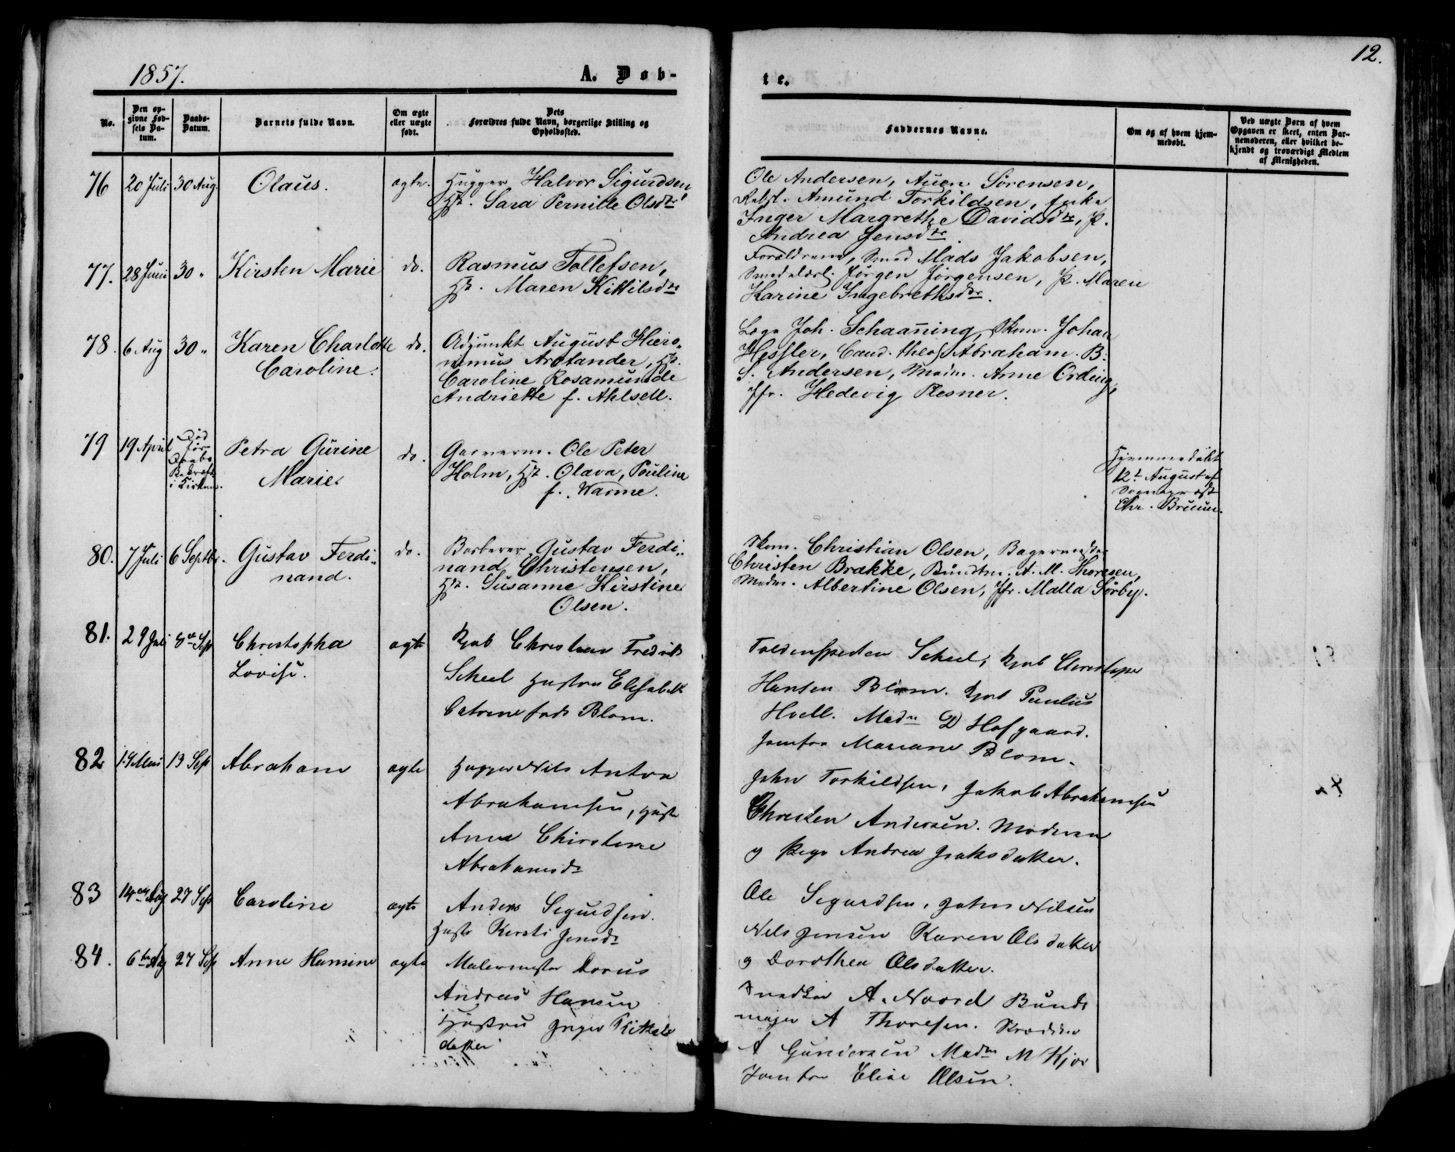 1857.
A. Døb-
te.
12.
No.
Den op-
givne Fød-
sels Da-
tum.
Daabs-
Datum.
Barnets fulde Navn.
Om ægte
eller uægte
født.
Dets
Forældres fulde Navn, borgerlige Stilling og
Opholdssted.
Faddernes Navne.
Om og af hvem hjem-
medøbt.
Ved uægte Barn af hvem
Opgaven er skeet, enten Bar-
nemoderen, eller hvilket be-
kjendt og troværdigt Medlem
af Menigheden.
76 20 Juli 30 Aug. Olaus. ægte. Hugger Halvor Sigurdsen,
Hst. Sara Pernille Olsdtr
Ole Andersen, Søren Sørensen,
Amund Torkildsen,
Inger Margrethe Davidsdtr, P.
Andrea Jensdtr.
77. 28 Juni 30 " Kirsten Marie do. Rasmus Tollefsen,
Hst. Maren Kittilsdtr
Forældrene, Smed Mads Jakobsen,
Smedelærl. Jørgen Jørgensen, P. Maren
Karine Ingebrethsdtr.
78. 6 Aug 30 " Karen Charlotte do. Adjunkt August Hiero-
Caroline. nimus Arctander, Hst.
Caroline Rosamunde
Andriette f. Ahlsell.
Læge Joh. Schaanning, Skom. Johan
Hessler, Cand. theol Abraham B.
S. Andersen, Mdm. Anne Ording,
Jfr. Hedevig Resner.
79 19 April Petra Gurine do. Garverm. Ole Peter
Marie. Holm, Hst. Olava, Pouline
f. Warme.
Død
før
Daabs
Bekræft.
i Kirken.
Hjemmedøbt
12t August af
Sognepræst
Chr. Bruun.
80. 7 Juli 6 Septbr. Gustav Ferdi- do. Barberer Gustav Ferdi-
nand. nand Christensen,
Hst. Susanne Kirstine
Olsen.
Skom. Christian Olsen, Bagermester
Christen Brække, Bundtm. A. M. Thoresen,
Madm. Albertine Olsen, Jfr. Malla Sørby.
81. 29 Juli Sep Christopha ægte Kjøb Christian Fredrik
Lovise. Scheel Hustru Elisabeth
Catrine født Blom.
Toldinspecteu Scheel, Kjøb Christopher
Hansen Blom. Kjøb Paulus
Hvell. Madm D Hofgaard.
Jomfru Mariane Blom.
82 13 Sep Abraham ægte Hugger Nils Anton
Abrahamsen, Hust
Anna Christine
Abrahamsdr
John Torkildsen, Jakob Abrahamsen
Christen Andersen. Moderen
og Pige Andrea Jaksdatter.
83 14 Aug 27 Sep Caroline ægte Anders Sigurdsen.
Hust Kersti Jensdr
Ole Sigurdsen, John Nilsen
Nils Jensen Karen Olsdatter
og Dorothea Olsdatter.
84. 6te Aug 27 Sep Anne Hamine ægte Malermester Dorus
Andreas Hansen
Hustru Inger Kittels
datter
Snedker A. Noord Bundt
mager A Thoresen. Skrædder
A Gundersen Madm M Kjær
Jomfru Elise Olsen.